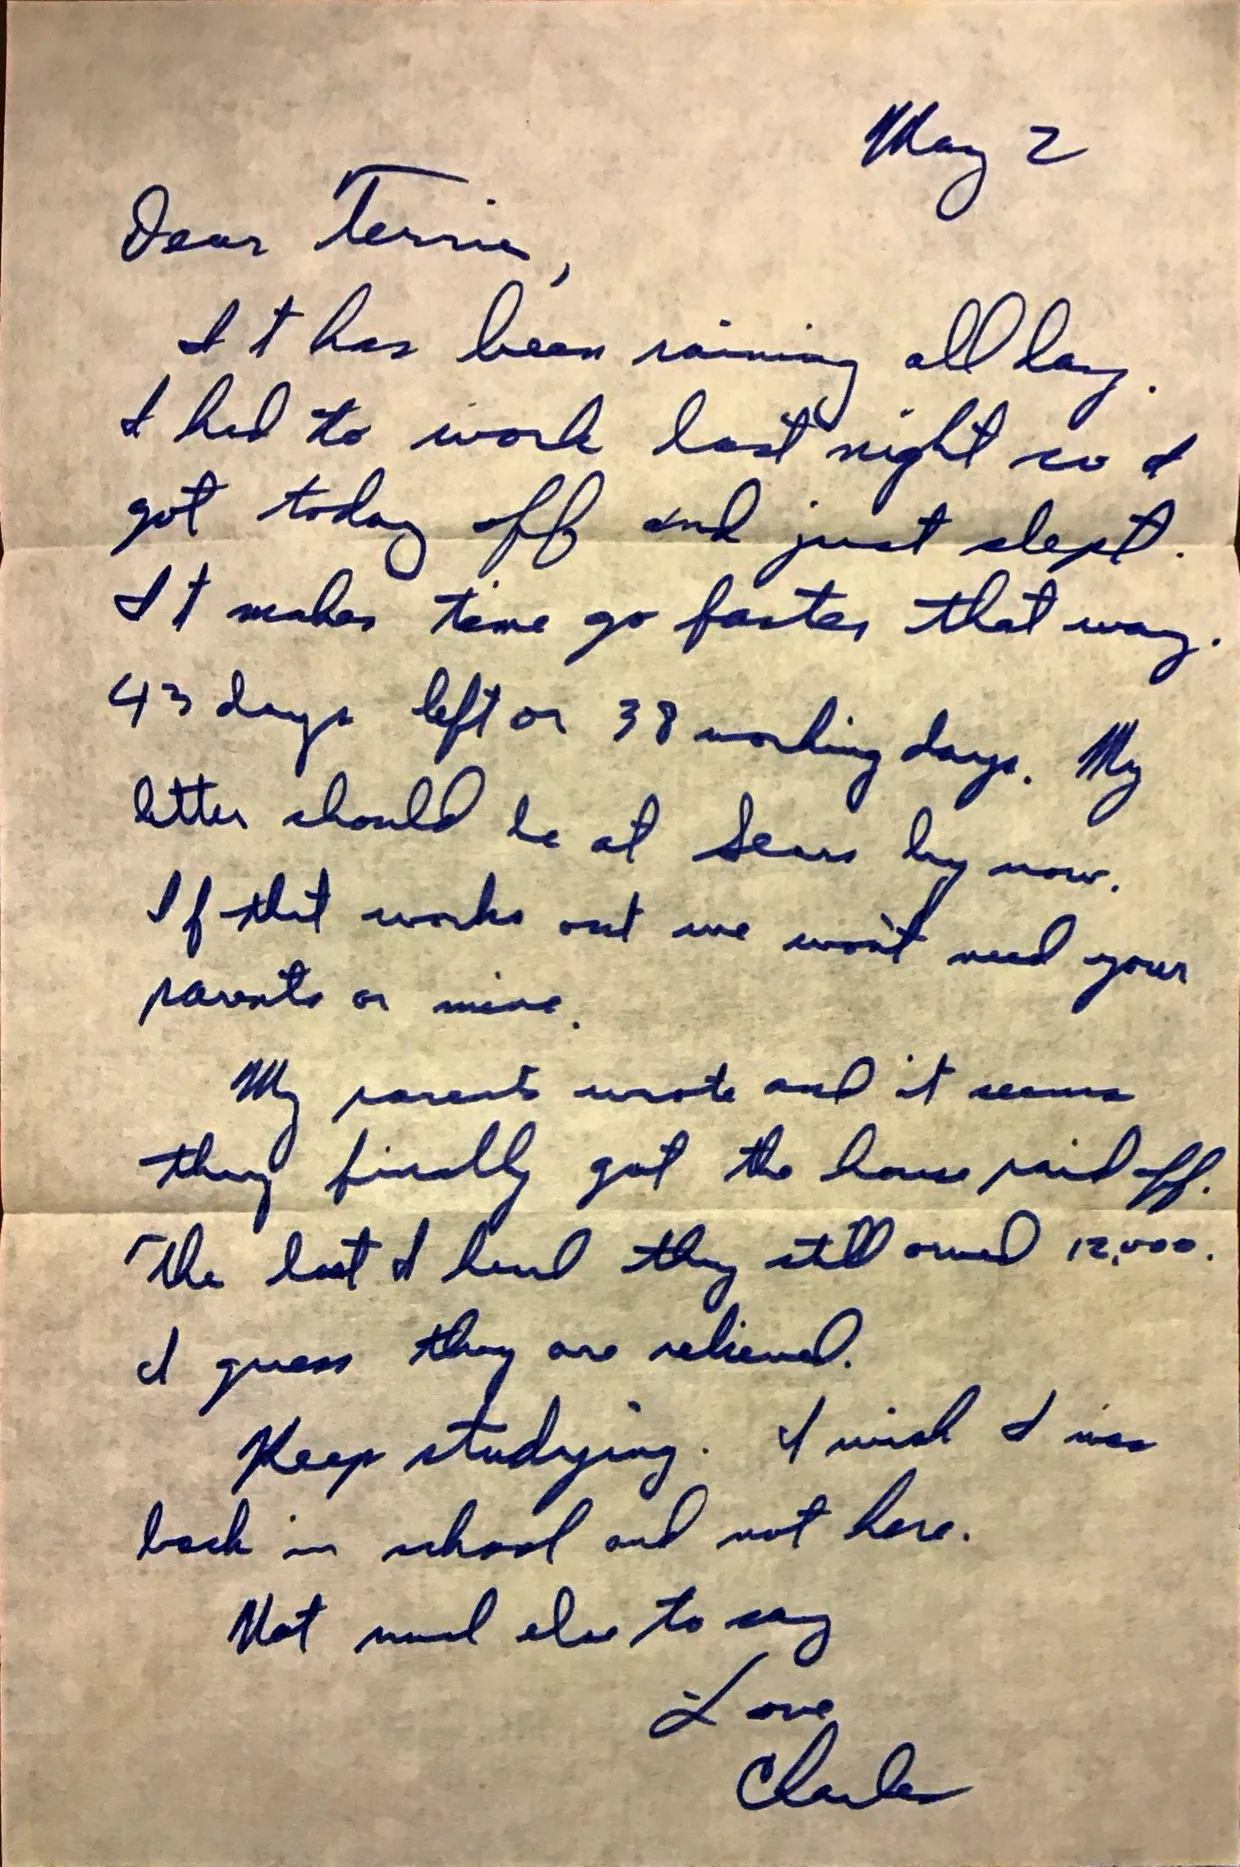 May 2
Dear Terrie,
It has been raining all day.
I had to work last night so I
got today off and just slept.
It makes time go faster that way.
43 days left or 38 working days. My
letter should be at Sears by now.
If that works out we won't need your
parents or mine.
My parents wrote and it seems
they finally got the house paid off.
The last I heard they still owed 12,000.
I guess they are relieved.
Keep studying. I wish I was
back in school and not here.
Not much else to say
Love
Charles